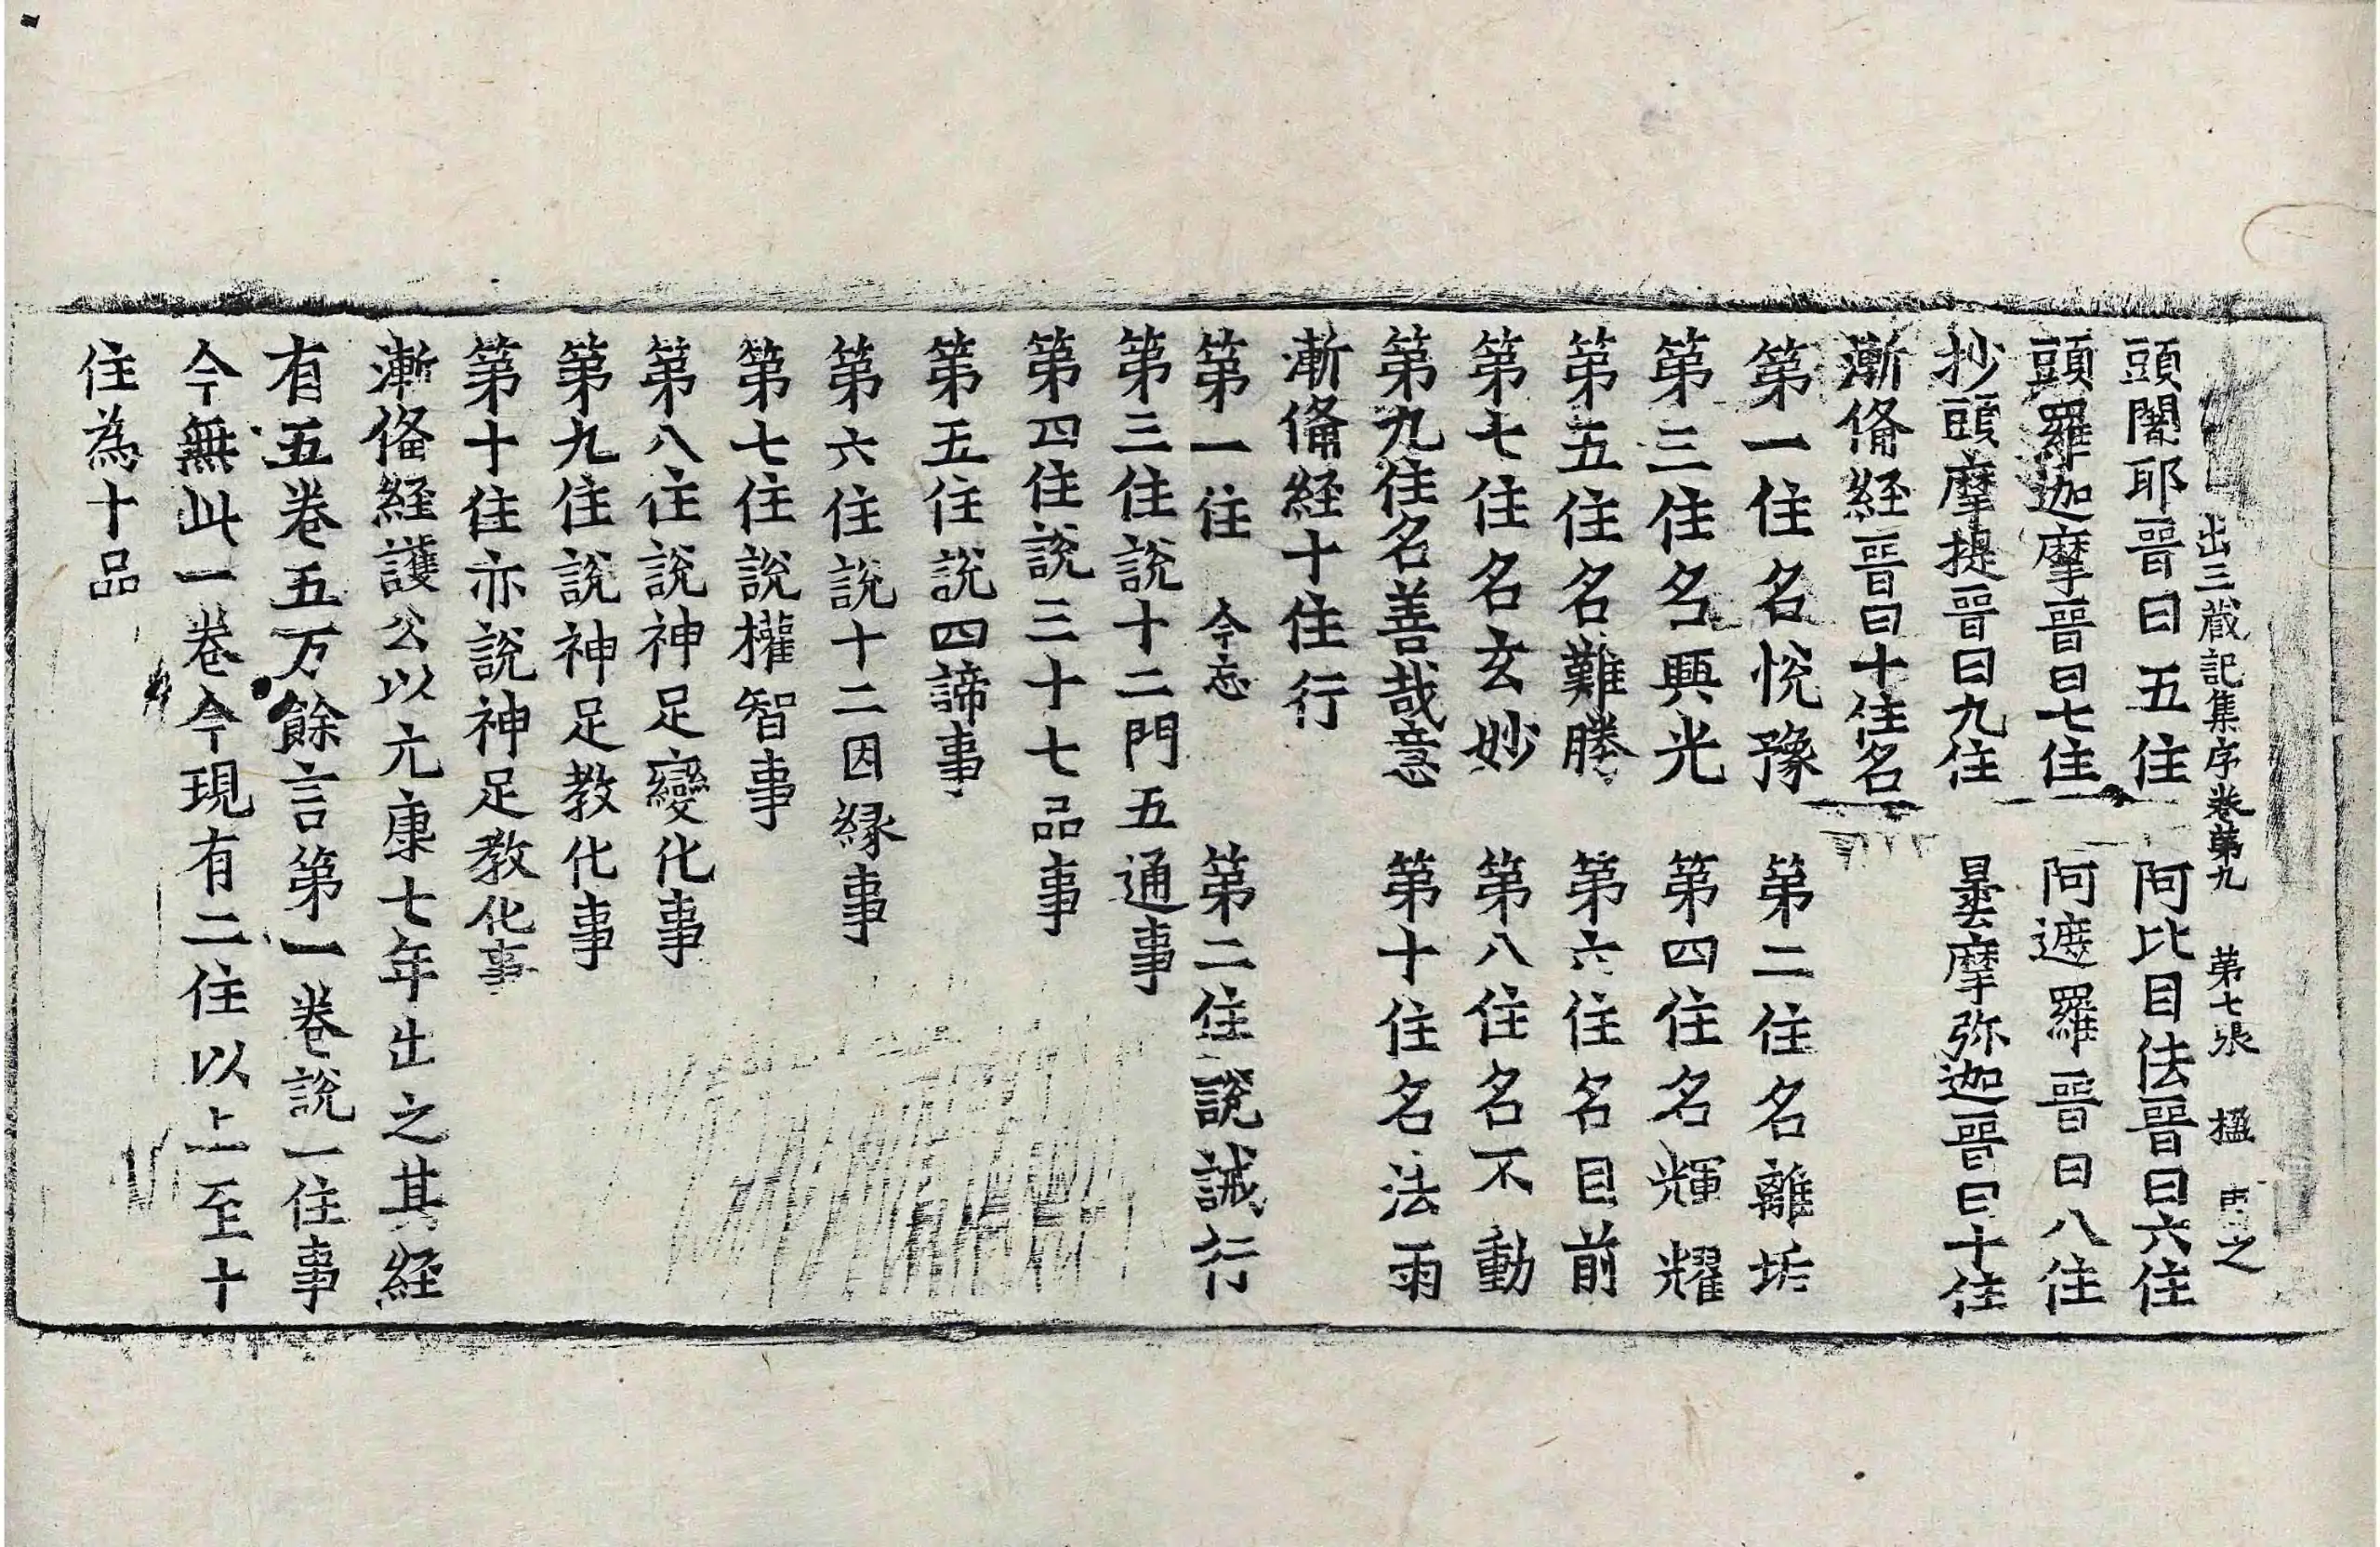 出三藏記集序卷第九　第七張　楹
頭闍耶晉曰五住　阿比目佉晉曰六住
頭羅迦摩晉曰七住　阿遮羅晉曰八住
抄頭摩提晉曰九住　曇摩弥迦晉曰十住
漸偹経晉曰十住名
第一住名恱豫　第二住名離垢
第三住名興光　第四住名輝耀
第五住名難勝　第六住名目前
第七住名玄妙　第八住名不動
第九住名善哉意　第十住名法雨
漸偹経十住行
第一住　今忘　第二住說誡行
第三住說十二門五通事
第四住說三十七品事
第五住說四諦事
第六住說十二因縁事
第七住說權智事
第八住說神足變化事
第九住說神足教化事
第十住亦說神足教化事
漸偹経護公以元康七年出之其経
有五卷五万餘言第一卷說一住事
今無此一卷今現有二住以上至十
住為十品